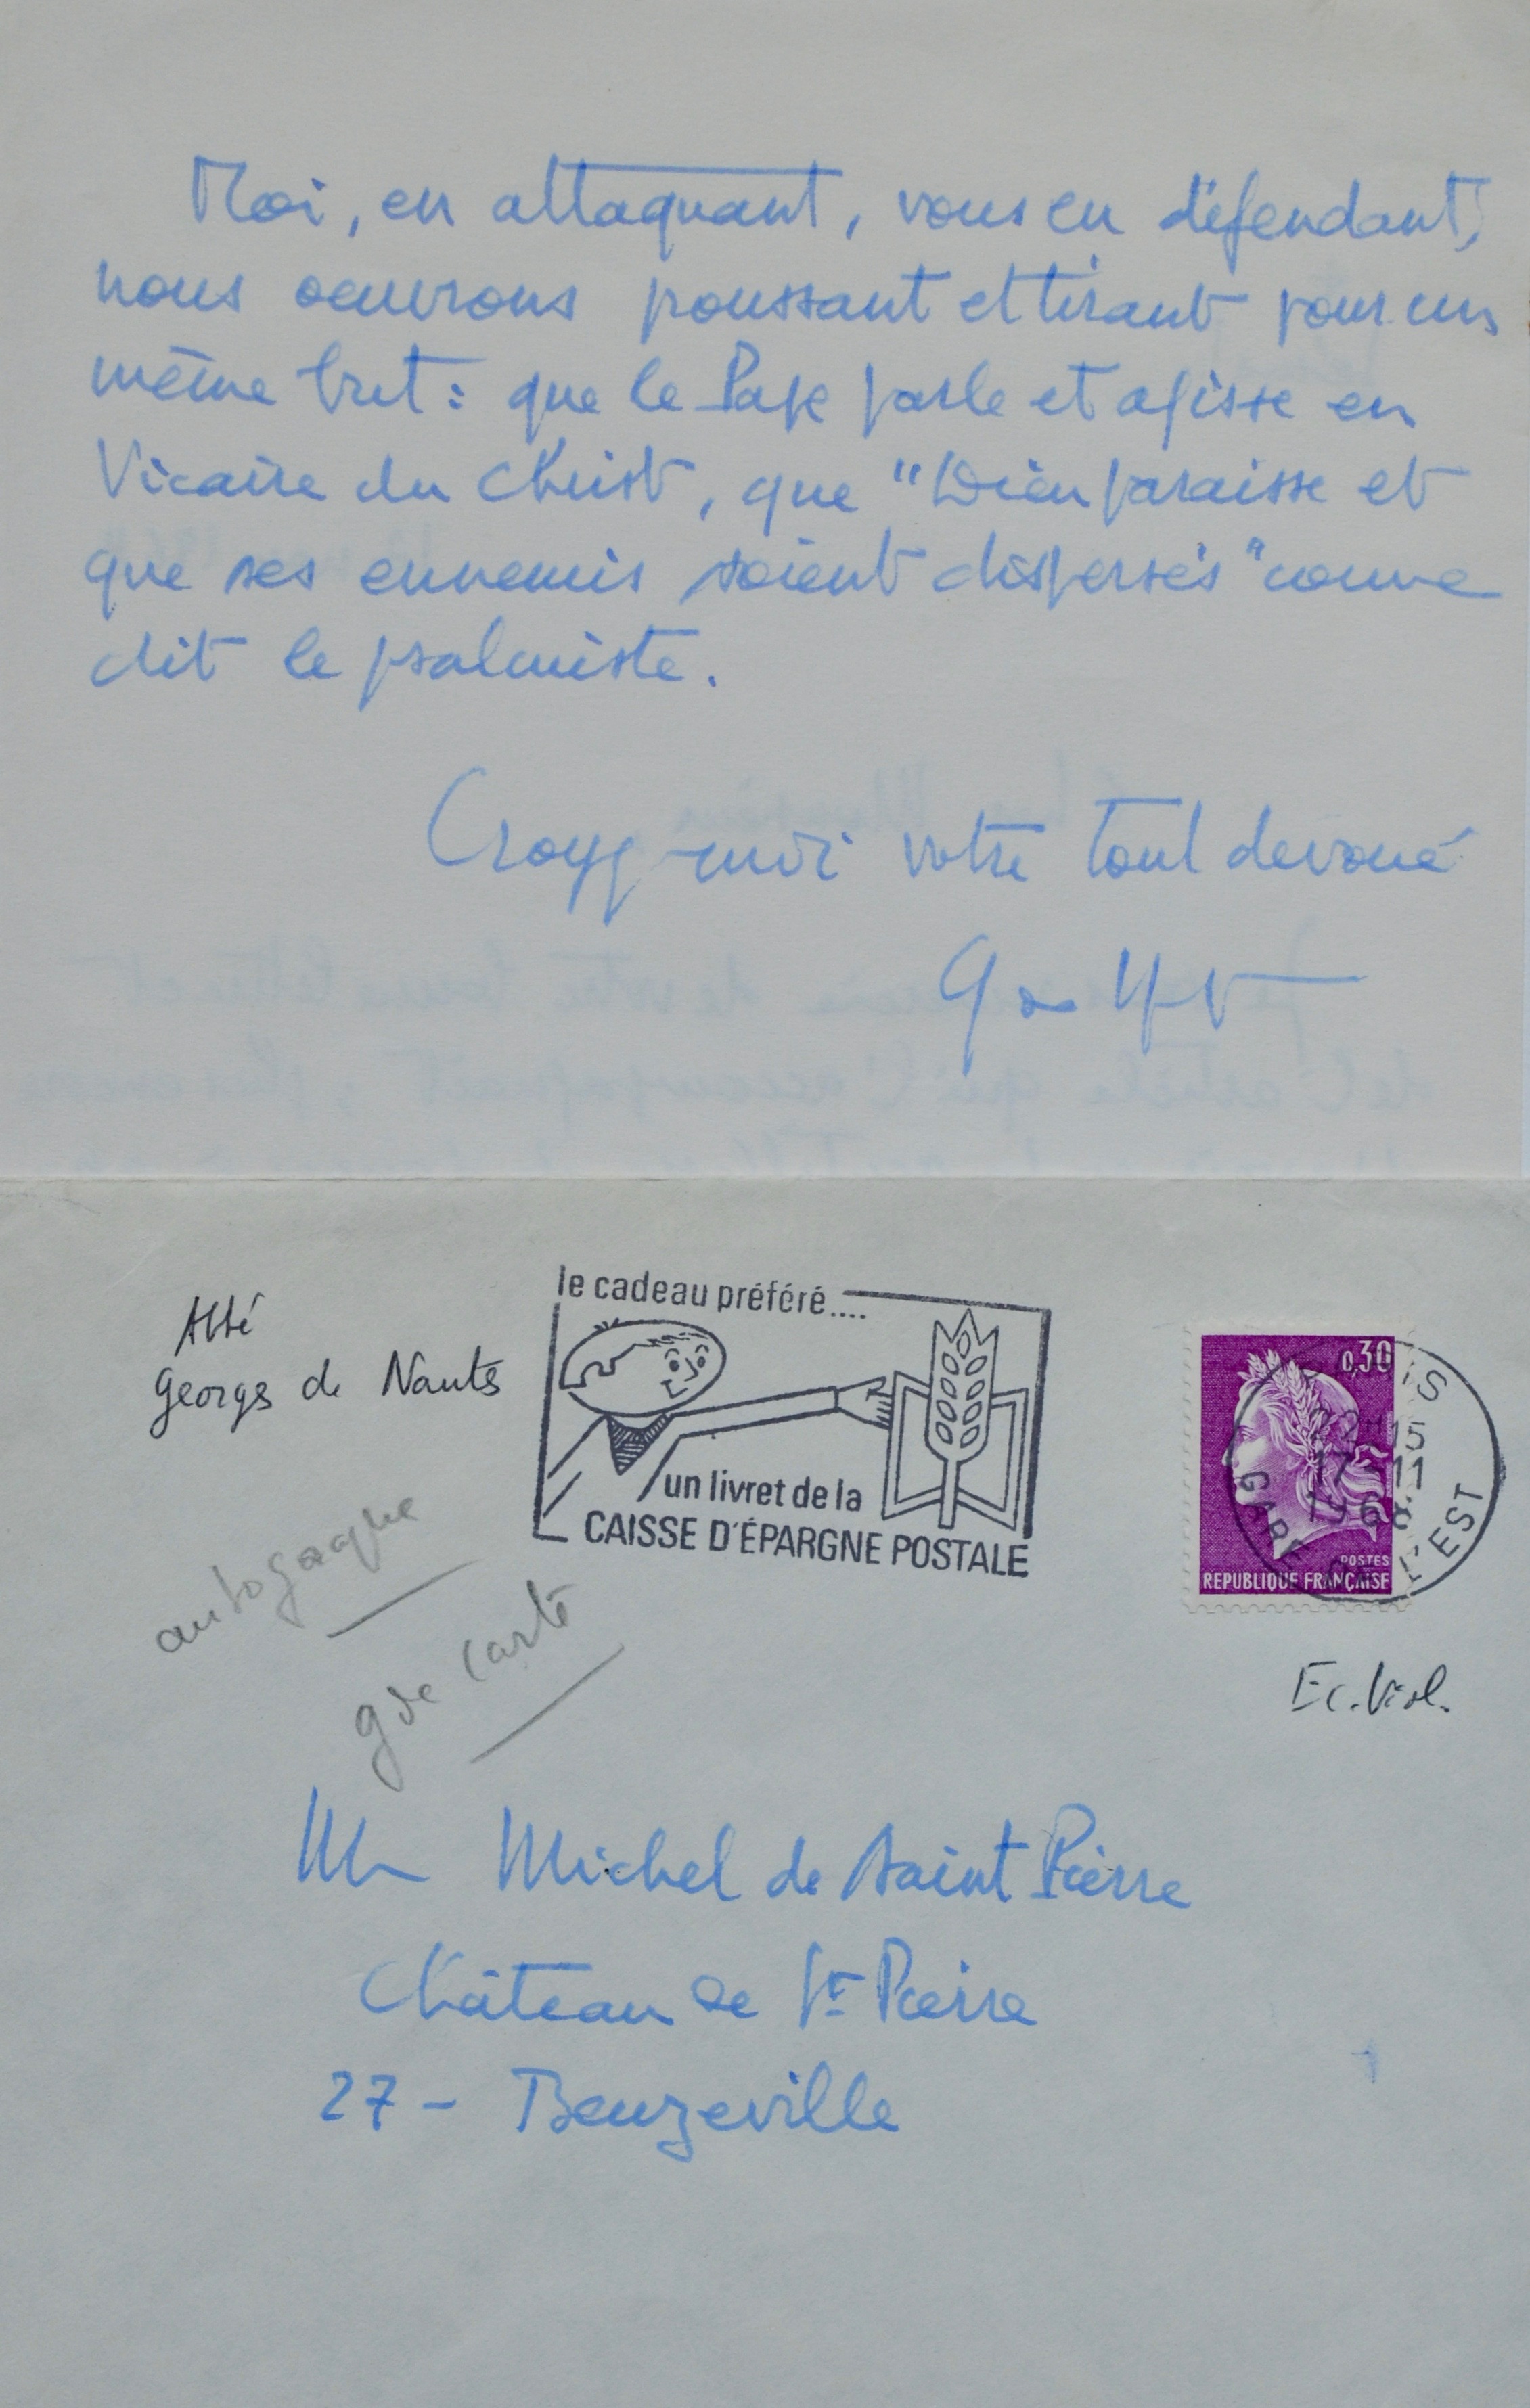 Moi, en attaquant, vous en défendant,
nous oeuvrons poussant et tirant pour un
même but : que le Pape parle et agisse en
Vicaire du Christ, que "Dieu paraisse et
que ses ennemis soient dispersés" comme
dit le psalmiste.
Croyez-moi votre tout dévoué
Abbé
Georges de Nantes
le cadeau préféré....
un livret de la
CAISSE D'ÉPARGNE POSTALE
0,30
22H15
17-11
1968
GARE DE L'EST
POSTES
REPUBLIQUE FRANÇAISE
autographe
gde carte
Ec. Viol.
Mr Michel de Saint Pierre
Château de St Pierre
27 - Beuzeville